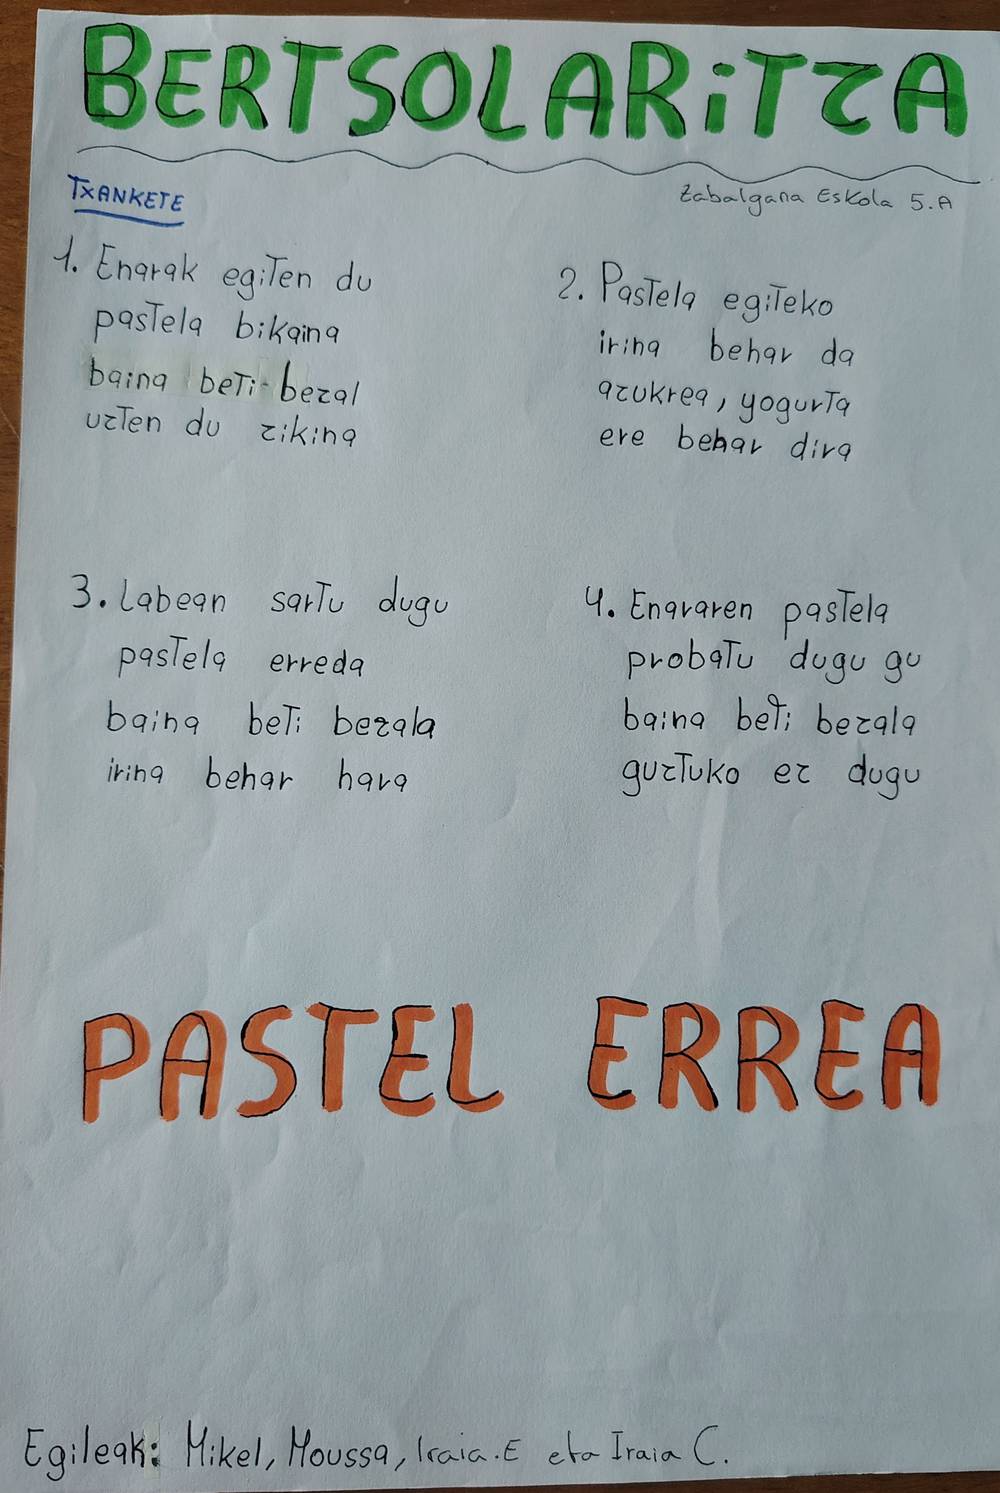 BERTSOLARiTZA
TXANKETE
Zabalgana Eskola 5.A
1. Enarak egiten du
pastela bikaina
baina beti bezal
uzten du zikina
2. Pastela egiteko
irina behar da
azukrea, yogurta
ere behar dira
3. Labean sartu dugu
pastela erreda
baina beti bezala
irina behar hara
4. Enararen pastela
probatu dugu gu
baina beti bezala
guztuko ez dugu
PASTEL ERREA
Egileak: Mikel, Moussa, Iraia.E eta Iraia C.